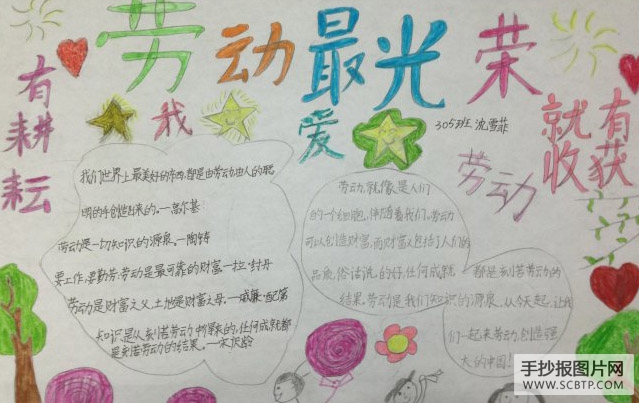 劳动最光荣
有耕耘
就有收获
我爱劳动
305班 沈雪菲
我们世界上最美好的东西,都是由劳动、由人的聪
明的手创造出来的。—高尔基
劳动是一切知识的源泉。—陶铸
要工作,要勤劳:劳动是最可靠的财富—拉·封丹
劳动是财富之父,土地是财富之母。—威廉·配第
知识是从刻苦劳动中得来的,任何成就都
是刻苦劳动的结果。—宋庆龄
劳动,就像是人们
的一个细胞,伴随着我们。劳动
可以创造财富,而财富又包括了人们的
品质,俗话说:的好,任何成就
都是刻苦劳动的
结果。劳动是我们知识的源泉,从今天起,让我
们一起来劳动,创造强
大的中国!
手抄报图片网
WWW.SCBTP.COM